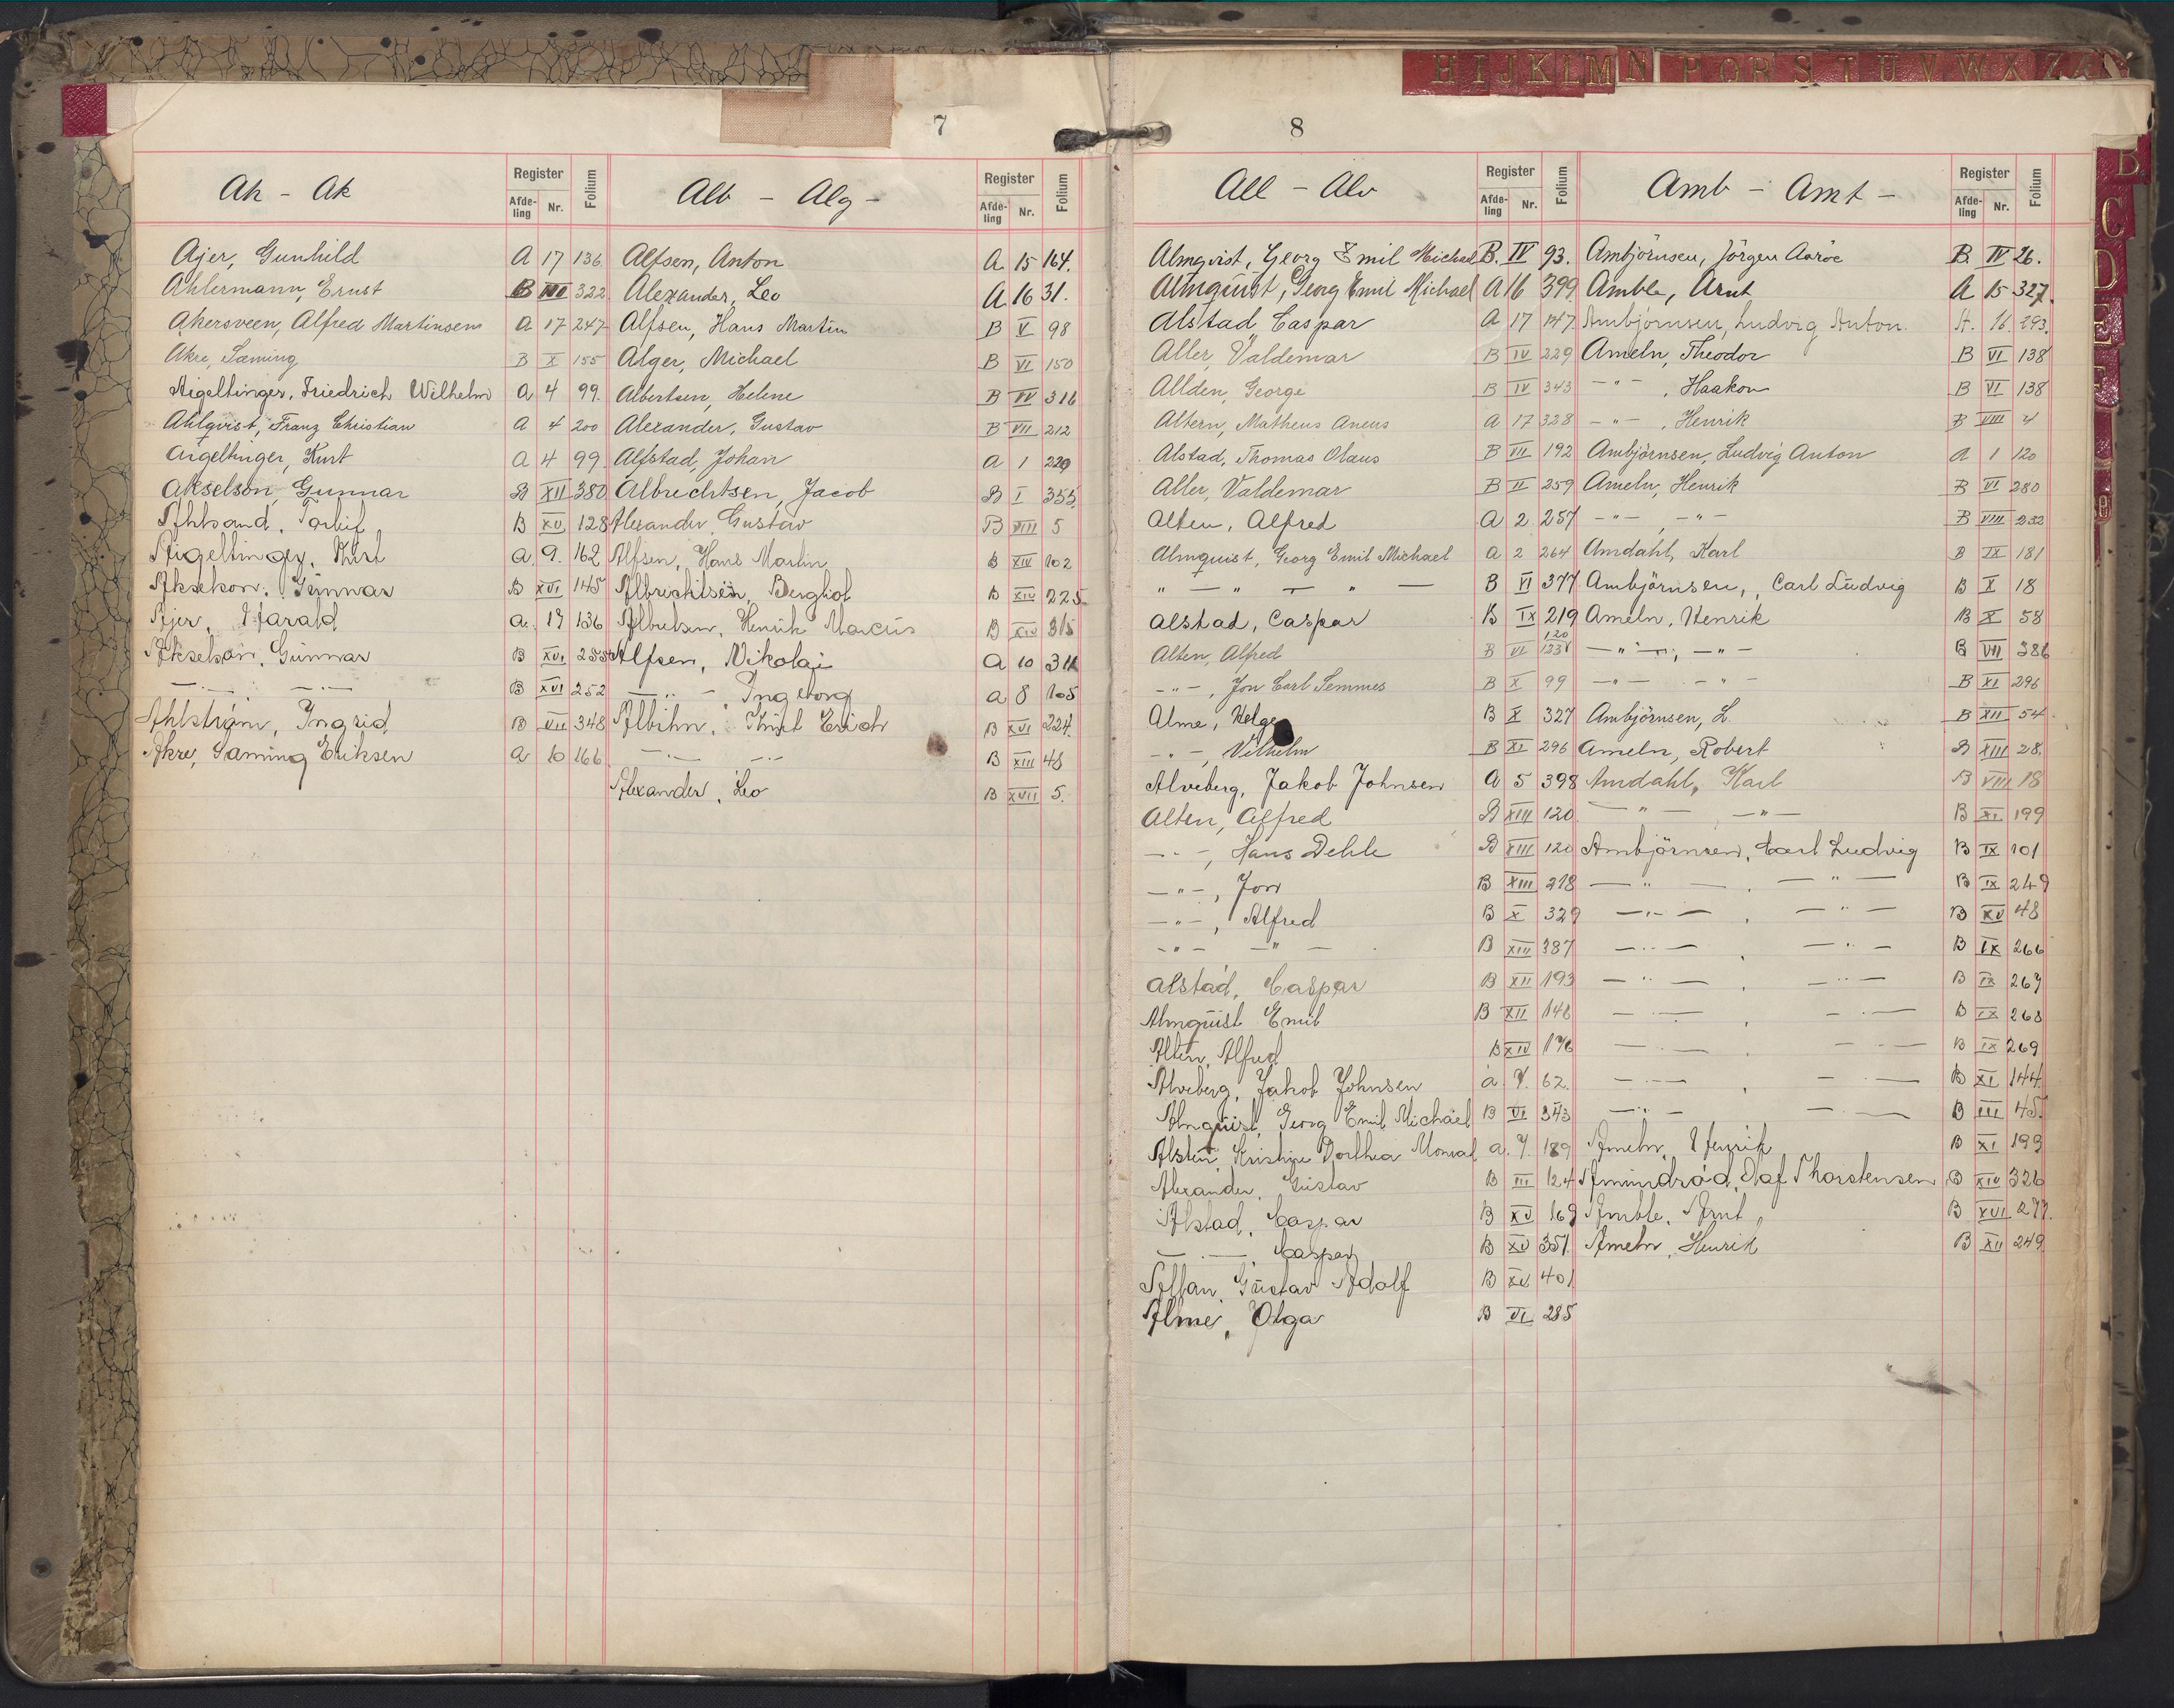 H I J K L M N P Q R S T U V W X Z
7
Ah - Ak
Register
Afde-
ling
Nr.
Folium
Ajer, Gunhild A 17 136.
Ahlermann, Ernst B III 322
Akersveen, Alfred Martinsen A 17 247
Akre, Sæming B X 155
Aigeltinger, Friedrich Wilhelm A 4 99.
Ahlqvist, Franz Christian A 4 200
Aigeltinger, Kurt A 4 99.
Akselson, Gunnar B XII 380
Ahlsand, B XV 128
Aigeltinger, Kurt a. 9. 162
Akselson, Gunnar B XVI 145
Ajer, Harald a. 17 136
Akselson, Gunnar B XVI 255
— " — — " — B XVI 252
Ahlstrøm, Ingrid B VII 348
Akre, Sæming Eriksen a 10 166
Alb - Alg -
Register
Afde-
ling
Nr.
Folium
Alfsen, Anton A 15 164.
Alexander, Leo A 16 31.
Alfsen, Hans Martin B V 98
Alger, Michael B VI 150
Albertsen, Helene B IV 316
Alexander, Gustav B VII 212
Alfstad, Johan A 1 220
Albrechtsen, Jacob B I 355
Alexander, Gustav B VIII 5
Alfsen, Hans Martin B XIV 102
Albrichtsen, Bergliot B XIV 225
Albertsen, Henrik Marcus B XIV 315
Alfsen, Nikolai A 10 311
— " — Ingeborg A 8 105
Albihn, Knut Erich B XVI 224.
— " — — " — B XIII 48
Alexander, Leo B XVII 5.
8
All - Alv
Register
Afde-
ling
Nr.
Folium
Almqvist, Georg Emil Michael B. IV 93.
Almquist, Georg Emil Michael A 16 399
Alstad Caspar A 17 147
Aller, Valdemar B IV 229
Allden, George B IV 343
Altern, Matheus Aneus A 17 328
Alstad, Thomas Olaus B VII 192
Aller, Valdemar B II 259
Alten, Alfred A 2 257
Almquist, Georg Emil Michael A 2 264
" — " — " — B VI 377
Alstad, Caspar B IX 219
Alten, Alfred B VI 120
- " - , Jon Carl Semmes B X 99
Alme, Helge B X 327
- " - , Vilhelm B XI 296
Alveberg, Jakob Johnsen A 5 398
Alten, Alfred B XIII 120
- " - , Hans Dehle B XIII 120
- " - , Jon B XIII 218
- " - , Alfred B X 329
- " - - " - B XIII 387
Alstad, Caspar B XII 193
Almquist Emil B XII 148
Alten, Alfred B XIV 176
Alveberg, Jakob Johnsen a 7. 62.
Almquist, Georg Emil Michael B VI 343
Alsten, Kristine Dorthea Monsal a. 7. 189
Alexander, Gustav B III 124
Alstad, Caspar B XV 169
— " — , Caspar B XV 351
Allan, Gustav Adolf B XV 401
Alme, Olga B VI 285
Amb - Amt -
Register
Afde-
ling
Nr.
Folium
Ambjörnsen, Jörgen Aaröe B. IV 26.
Amble, Arnt A 15 327.
Ambjörnsen, Ludvig Anton. A. 16. 293.
Ameln, Theodor B VI 138
- " - , Haakon B VI 138
- " - , Henrik B VIII 4
Ambjörnsen, Ludvig Anton A 1 120
Ameln, Henrik B VI 280
- " - , - " - B VIII 232
Amdahl, Karl B IX 181
Ambjörnsen, Carl Ludvig B X 18
Ameln, Henrik B X 58
- " - , - " - B VII 386
- " - - " - B XI 296
Ambjörnsen, L. B XII 54
Ameln, Robert B XIII 28.
Amdahl, Karl B VIII 18
— " — — " — B XI 199
Ambjörnsen, Carl Ludvig B IX 101
— " — , — " — B IX 249
— " — , — " — B XV 48
— " — , — " — B IX 266
— " — , — " — B IX 267
— " — , — " — B IX 268
— " — , — " — B IX 269
— " — , — " — B XI 144.
— " — — " — B III 45.
Ameln, Henrik B XI 199
Amundrød, Olaf Thorstensen B XIV 326
Amble, Arnt, B XVI 277.
Ameln, Henrik B XII 249
B
C
D
E
F